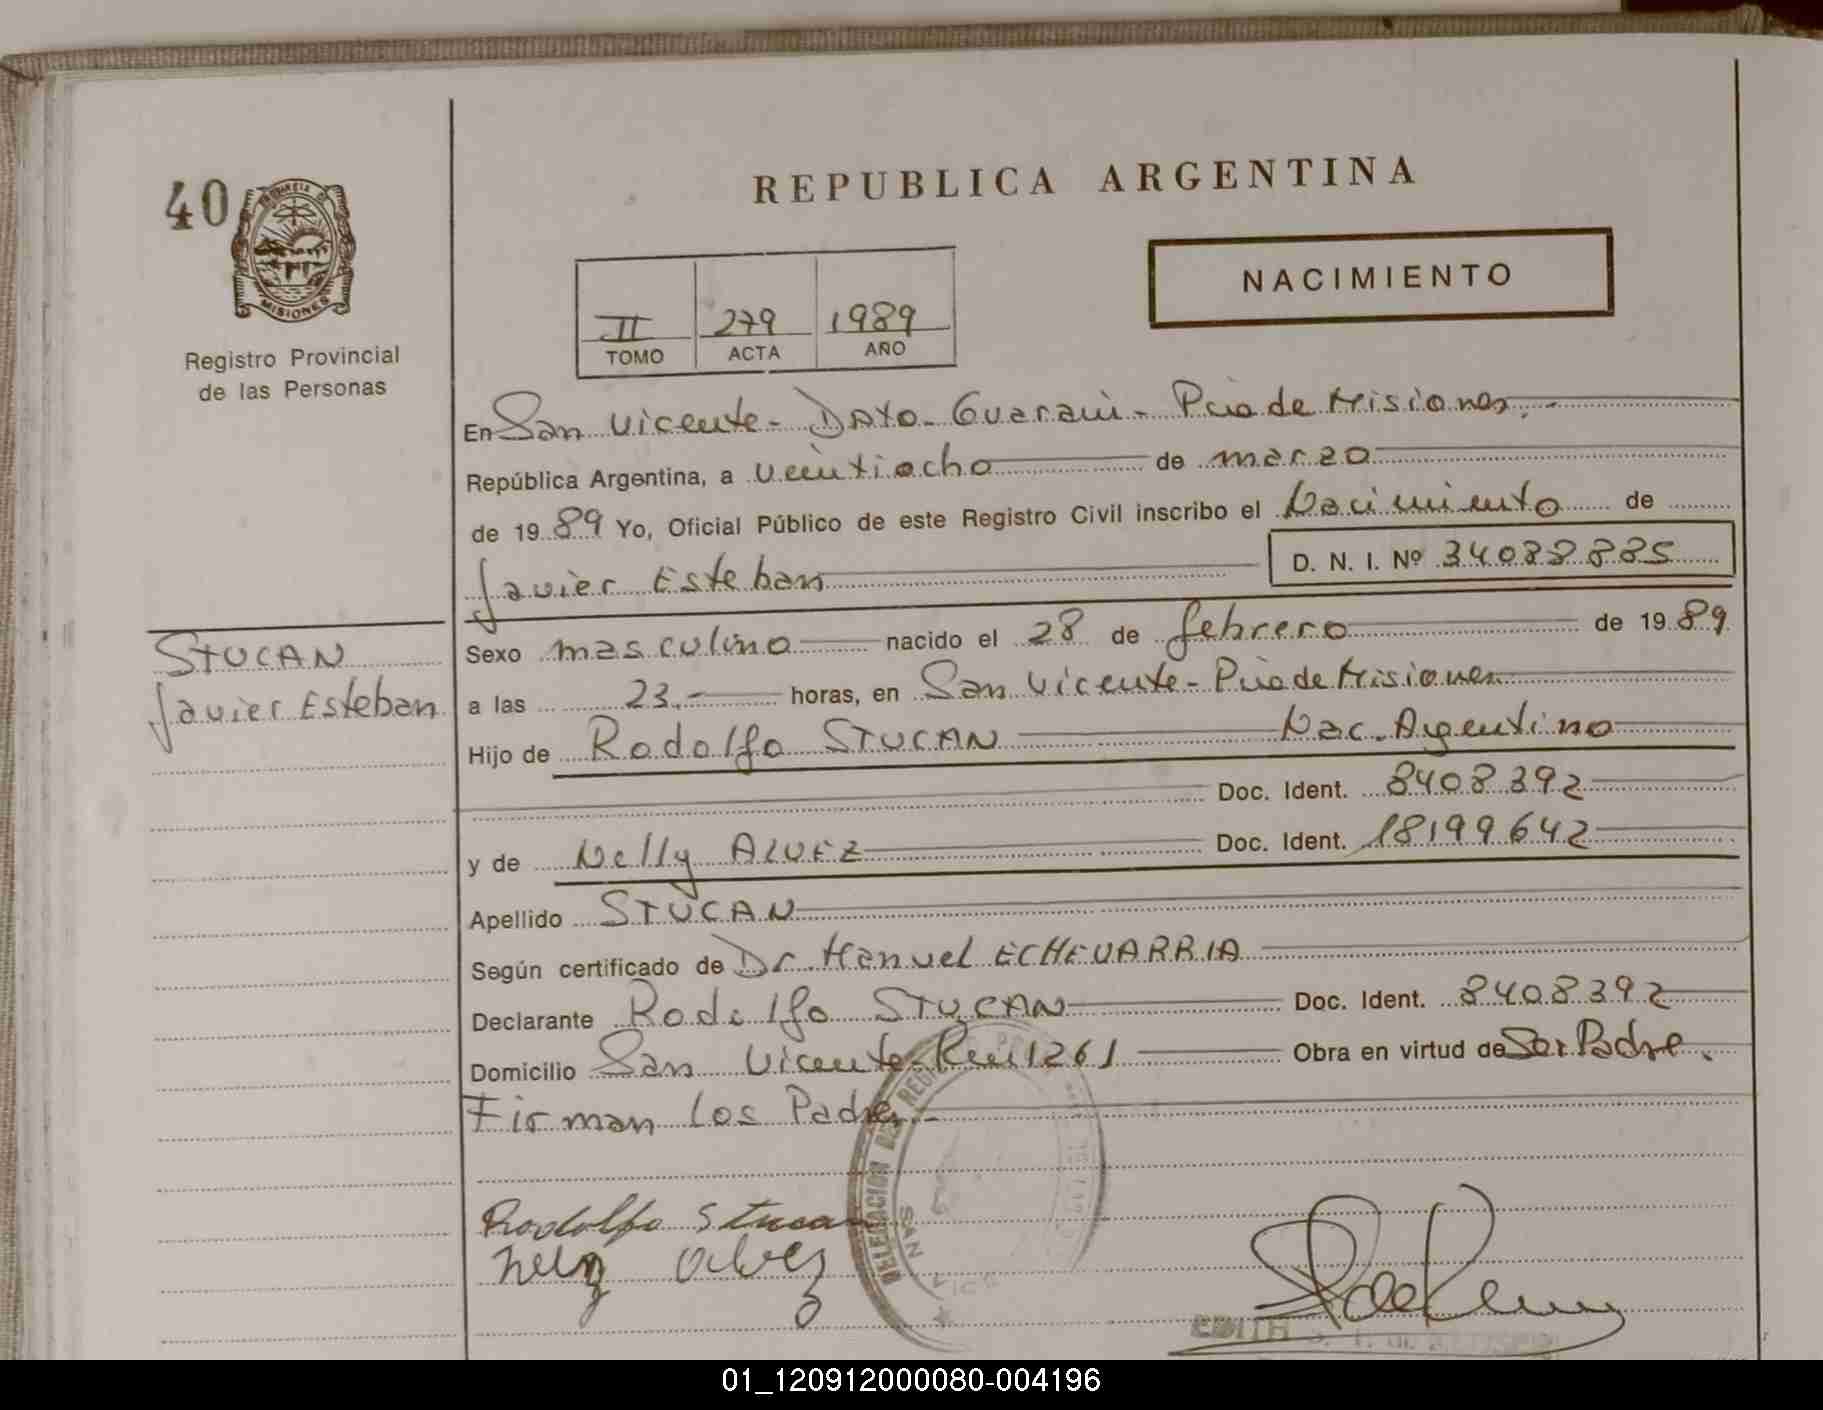 40
PROVINCIA DE
MISIONES
Registro Provincial
de las Personas
REPUBLICA ARGENTINA
NACIMIENTO
II 279 1989
TOMO ACTA AÑO
En San Vicente - Dpto - Guarani - Pcia de Misiones. -
República Argentina, a veintiocho de marzo
de 1989 Yo, Oficial Público de este Registro Civil inscribo el Nacimiento de
Javier Esteban D. N. I. Nº 34088885
STUCAN
Javier Esteban
Sexo masculino nacido el 28 de febrero de 1989
a las 23.- horas, en San Vicente - Pcia de Misiones
Hijo de Rodolfo STUCAN Nac. Argentino
Doc. Ident. 8408392
y de Nelly ALVEZ Doc. Ident. 18199642
Apellido STUCAN
Según certificado de Dr. Manuel ECHEVARRIA
Declarante Rodolfo STUCAN Doc. Ident. 8408392
Domicilio San Vicente - Km 1261 Obra en virtud de Ser Padre.
Firman los Padres. -
DELEGACION DEL REG
SAN VICE
Rodolfo Stucan
Nelly Alvez
EDITH
01_120912000080-004196